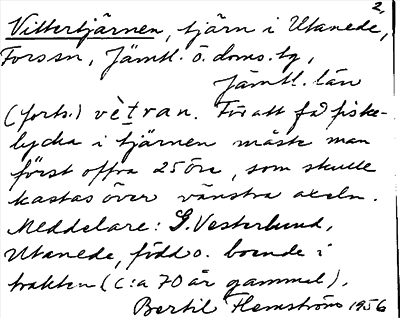 2.
Vittertjärnen, tjärn i Utanede,
Forssn, Jämtl. ö. doms. tg,
Jämtl. län
(forts.) vètran. För att få fiske-
lycka i tjärnen måste man
först offra 25 öre, som skulle
kastas över vänstra axeln.
Meddelare: G. Vesterlund,
Utanede, född o. boende i
trakten (c:a 70 år gammal).
Bertil Flemström 1956